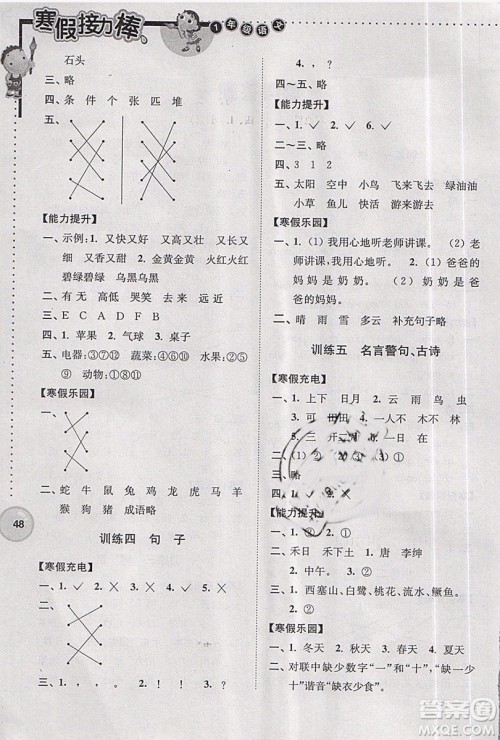 寒假接力棒
1年级语文
石头
三、略
四、条 件 个 张 匹 堆
五、
【能力提升】
一、示例：1. 又快又好 又高又大 又
香又甜 2. 金黄金黄 火红火红
碧绿碧绿 乌黑乌黑
二、有 无 高低 哭笑 去 远近
三、E C A D F B
四、1. 苹果 2. 气球 3. 桌子
五、电器：①③ 蔬菜：⑤⑦ 水果：
②④ 动物：⑥⑧
【寒假乐园】
一、
二、蛇 牛 鼠 兔 鸡 龙 虎 马 羊
猴 狗 猪 成语略
训练四 句 子
【寒假充电】
一、1. ✓ 2. × 3. ✓ 4. ✓ 5. ×
二、
三、1. 。 2. ！ 3. ？
48
4. ， ， 。
四～五、略
【能力提升】
一、1. ✓ 2. ✓ 6. ✓
二～三、略
四、3 1 2
五、太阳 空中 小鸟 飞来飞去 绿油油
小草 鱼儿 快活 游来游去
【寒假乐园】
一、1. （1）我用心地听老师讲课。（2）
我用心地听老师讲课。 2. （1）爸爸
的妈妈是奶奶。 （2）奶奶是爸爸
的妈妈。
二、晴 雨 雪 多云 补充句子略
训练五 名言警句、古诗
【寒假充电】
一、1. 上下 日月 2. 云 雨 鸟 虫
3. 可 田 4. 一人不 木 木 林
5. 三 开
二、（1）②
【能力提升】
一、1. 禾 日 午 汗 禾下土
2. 中午。 3. ②
二、1. 西塞山、白鹭、桃花、流水、鳜鱼。
2. ① 3. ②
【寒假乐园】
一、1. 冬天 2. 秋天 3. 春天 4. 夏天
二、对联中少了数字“一”和“十”，“缺一少
十”谐音“缺衣少食”。
答案圈
MXQE.COM